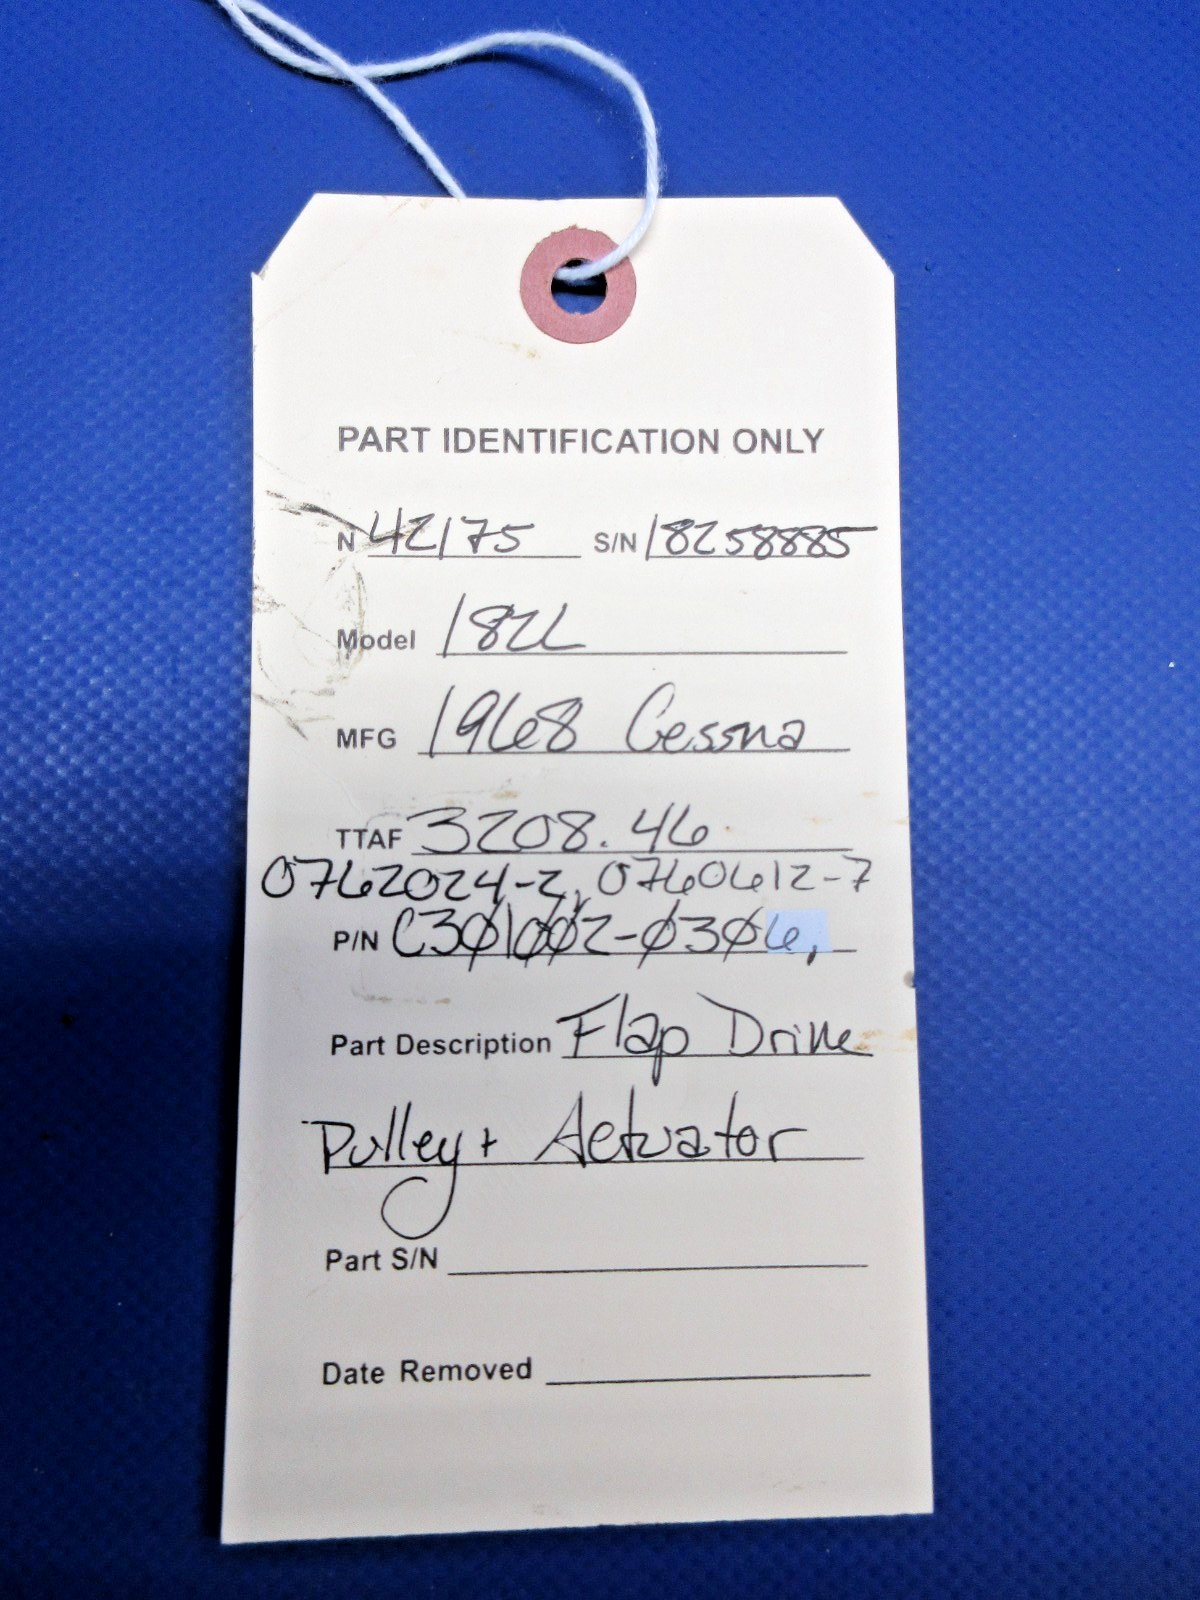 PART IDENTIFICATION ONLY
N 42175 S/N 18258885
Model 182L
MFG 1968 Cessna
TTAF 3208.46
0762024-2, 0760612-7
P/N C301002-0306,
Part Description Flap Drive
Pulley + Actuator
Part S/N
Date Removed